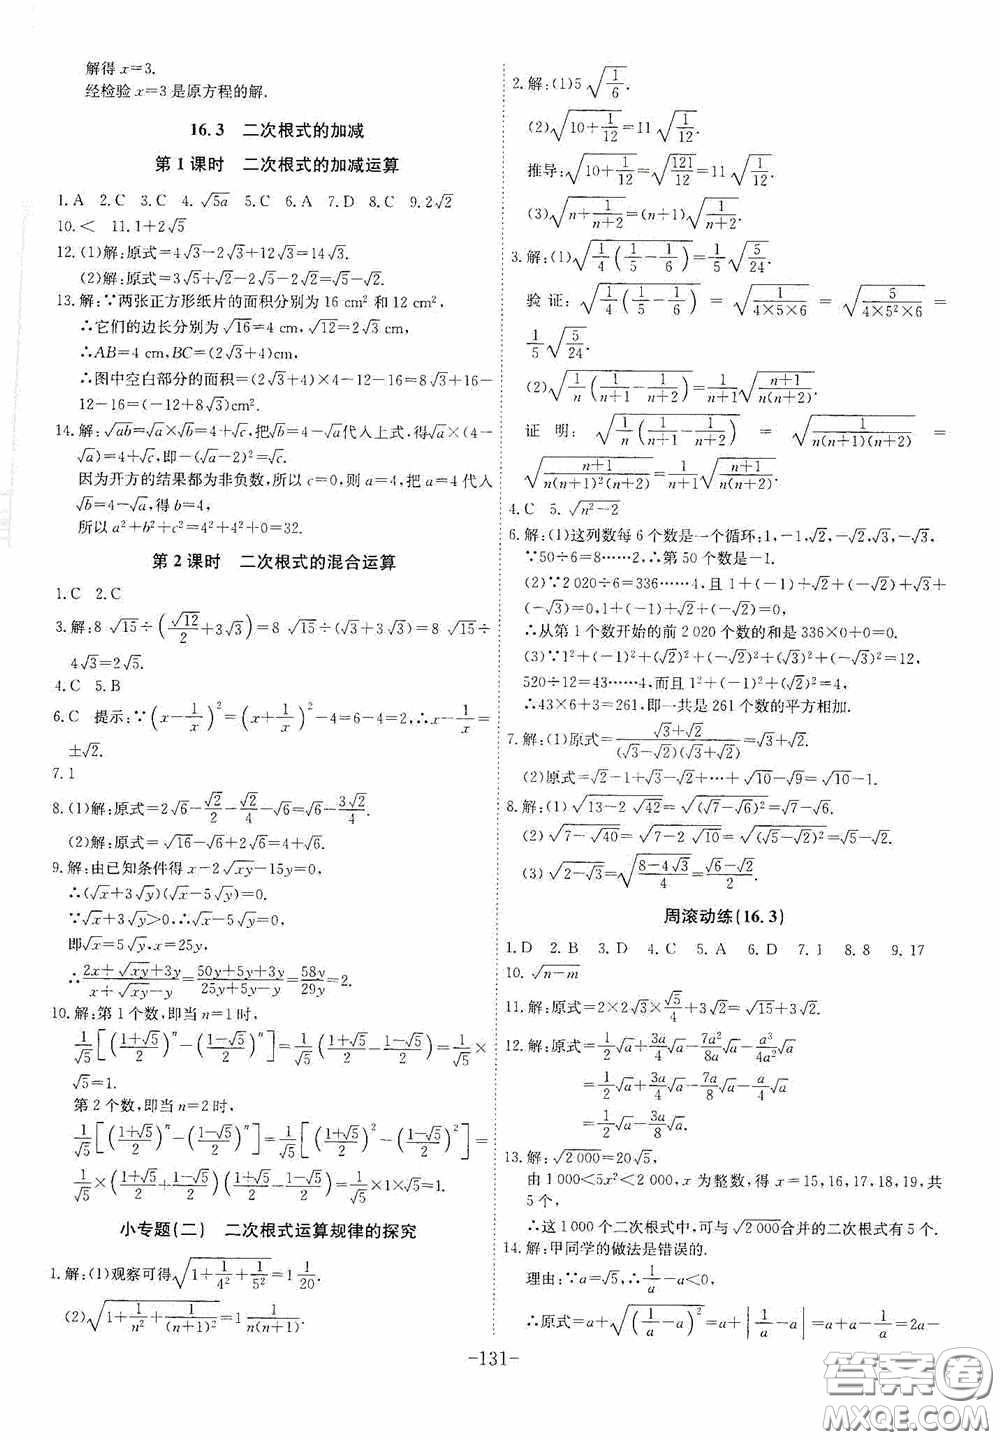 解得 x=3.
经检验 x=3 是原方程的解.
16.3 二次根式的加减
第1课时 二次根式的加减运算
1.A 2.C 3.C 4.√(5a) 5.C 6.A 7.D 8.C 9.2√2
10.< 11.1+2√5
12.(1)解:原式=4√3-2√3+12√3=14√3.
(2)解:原式=3√5+√2-2√5-2√2=√5-√2.
13.解:∵两张正方形纸片的面积分别为 16 cm² 和 12 cm²,
∴它们的边长分别为√16=4 cm,√12=2√3 cm,
∴AB=4 cm,BC=(2√3+4)cm,
∴图中空白部分的面积=(2√3+4)×4-12-16=8√3+16-
12-16=(-12+8√3)cm².
14.解:√(ab)=√a×√b=4+√c,把√b=4-√a代入上式,得√a×(4-
√a)=4+√c,即-(√a-2)²=√c.
因为开方的结果都为非负数,所以 c=0,则 a=4,把 a=4 代入
√b=4-√a,得 b=4,
所以 a²+b²+c²=4²+4²+0=32.
第2课时 二次根式的混合运算
1.C 2.C
3.解:8√15÷(√12/2+3√3)=8√15÷(√3+3√3)=8√15÷
4√3=2√5.
4.C 5.B
6.C 提示:∵(x-1/x)²=(x+1/x)²-4=6-4=2,∴x-1/x=
±√2.
7.1
8.(1)解:原式=2√6-√2/2-√2/4-√6=√6-3√2/4.
(2)解:原式=√16-√6+2√6=4+√6.
9.解:由已知条件得 x-2√(xy)-15y=0,
∴(√x+3√y)(√x-5√y)=0.
∵√x+3√y>0,∴√x-5√y=0,
即√x=5√y,x=25y,
∴(2x+√(xy)+3y)/(x+√(xy)-y)=(50y+5y+3y)/(25y+5y-y)=58y/29y=2.
10.解:第1个数,即当 n=1 时,
1/√5[((1+√5)/2)ⁿ-((1-√5)/2)ⁿ]=1/√5((1+√5)/2-(1-√5)/2)=1/√5×
√5=1.
第2个数,即当 n=2 时,
1/√5[((1+√5)/2)ⁿ-((1-√5)/2)ⁿ]=1/√5[((1+√5)/2)²-((1-√5)/2)²]=
1/√5×((1+√5)/2+(1-√5)/2)((1+√5)/2-(1-√5)/2)=1/√5×1×√5=1.
小专题(二) 二次根式运算规律的探究
1.解:(1)观察可得√(1+1/4²+1/5²)=1 1/20.
(2)√(1+1/n²+1/(n+1)²)=1 1/(n(n+1)).
2.解:(1)5√(1/6).
(2)√(10+1/12)=11√(1/12).
推导:√(10+1/12)=√(121/12)=11√(1/12).
(3)√(n+1/(n+2))=(n+1)√(1/(n+2)).
3.解:(1)√(1/4(1/5-1/6))=1/5√(5/24).
验证:√(1/4(1/5-1/6))=√(1/(4×5×6))=√(5/(4×5²×6))=
1/5√(5/24).
(2)√(1/n(1/(n+1)-1/(n+2)))=1/(n+1)√((n+1)/(n(n+2))).
证明:√(1/n(1/(n+1)-1/(n+2)))=√(1/(n(n+1)(n+2)))=
√((n+1)/(n(n+1)²(n+2)))=1/(n+1)√((n+1)/(n(n+2))).
4.C 5.√(n²-2)
6.解:(1)这列数每6个数是一个循环:1,-1,√2,-√2,√3,-√3,
∵50÷6=8……2,∴第50个数是-1.
(2)∵2 020÷6=336……4,且1+(-1)+√2+(-√2)+√3+
(-√3)=0,1+(-1)+√2+(-√2)=0,
∴从第1个数开始的前2 020个数的和是336×0+0=0.
(3)∵1²+(-1)²+(√2)²+(-√2)²+(√3)²+(-√3)²=12,
520÷12=43……4,而且1²+(-1)²+(√2)²=4,
∴43×6+3=261,即一共是261个数的平方相加.
7.解:(1)原式=(√3+√2)/((√3-√2)(√3+√2))=√3+√2.
(2)原式=√2-1+√3-√2+…+√10-√9=√10-1.
8.解:(1)√(13-2√42)=√((√7-√6)²)=√7-√6.
(2)√(7-√40)=√(7-2√10)=√((√5-√2)²)=√5-√2.
(3)√(2-√3)=√((8-4√3)/4)=(√6-√2)/2.
周滚动练(16.3)
1.D 2.B 3.D 4.C 5.A 6.D 7.1 8.8 9.17
10.√(n-m)
11.解:原式=2×2√3×√5/4+3√2=√15+3√2.
12.解:原式=1/2√a+3a/4√a-7a²/8a√a-a³/4a²√a
=1/2√a+3a/4√a-7a/8√a-a/4√a
=1/2√a-3a/8√a.
13.解:√(2 000)=20√5,
由1 000<5x²<2 000,x为整数,得 x=15,16,17,18,19,共
5个,
∴这1 000个二次根式中,可与√(2 000)合并的二次根式有5个.
14.解:甲同学的做法是错误的.
理由:∵a=√5,∴1/a-a<0,
∴原式=a+√((1/a-a)²)=a+|1/a-a|=a+a-1/a=2a-
-131-
答案卷
MXQE.COM